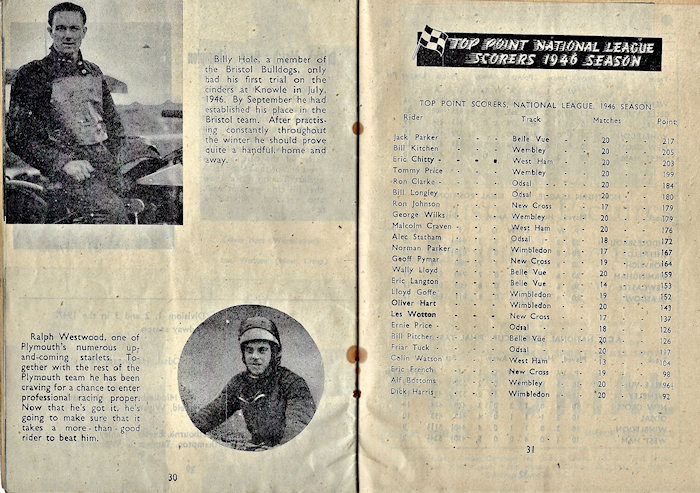 Billy Hole, a member of
the Bristol Bulldogs, only
had his first trial on the
cinders at Knowle in July,
1946. By September he had
established his place in the
Bristol team. After practis-
ing constantly throughout
the winter he should prove
quite a handful, home and
away.
Ralph Westwood, one of
Plymouth's numerous up-
and-coming starlets. To-
gether with the rest of the
Plymouth team he has been
craving for a chance to enter
professional racing proper.
Now that he's got it, he's
going to make sure that it
takes a more-than-good
rider to beat him.
30
TOP POINT NATIONAL LEAGUE
SCORERS 1946 SEASON
TOP POINT SCORERS, NATIONAL LEAGUE, 1946 SEASON
Rider Track Matches Point
Jack Parker Belle Vue 20 217
Bill Kitchen Wembley 20 205
Eric Chitty West Ham 20 203
Tommy Price Wembley 20 199
Ron Clarke Odsal 20 184
Bill Longley Odsal 20 180
Ron Johnson New Cross 17 179
George Wilks Wembley 20 179
Malcolm Craven West Ham 20 176
Alec Statham Odsal 18 172
Norman Parker Wimbledon 17 167
Geoff Pymar New Cross 19 164
Wally Lloyd Belle Vue 20 159
Eric Langton Belle Vue 14 153
Lloyd Goffe Wimbledon 19 152
Oliver Hart Wimbledon 20 143
Les Wotton New Cross 17 137
Ernie Price Odsal 18 126
Bill Pitcher Belle Vue 20 126
Friar Tuck Odsal 20 117
Colin Watson West Ham 13 104
Eric French New Cross 19 98
Alf Bottoms Wembley 20 96
Dick Harris Wimbledon 20 92
31